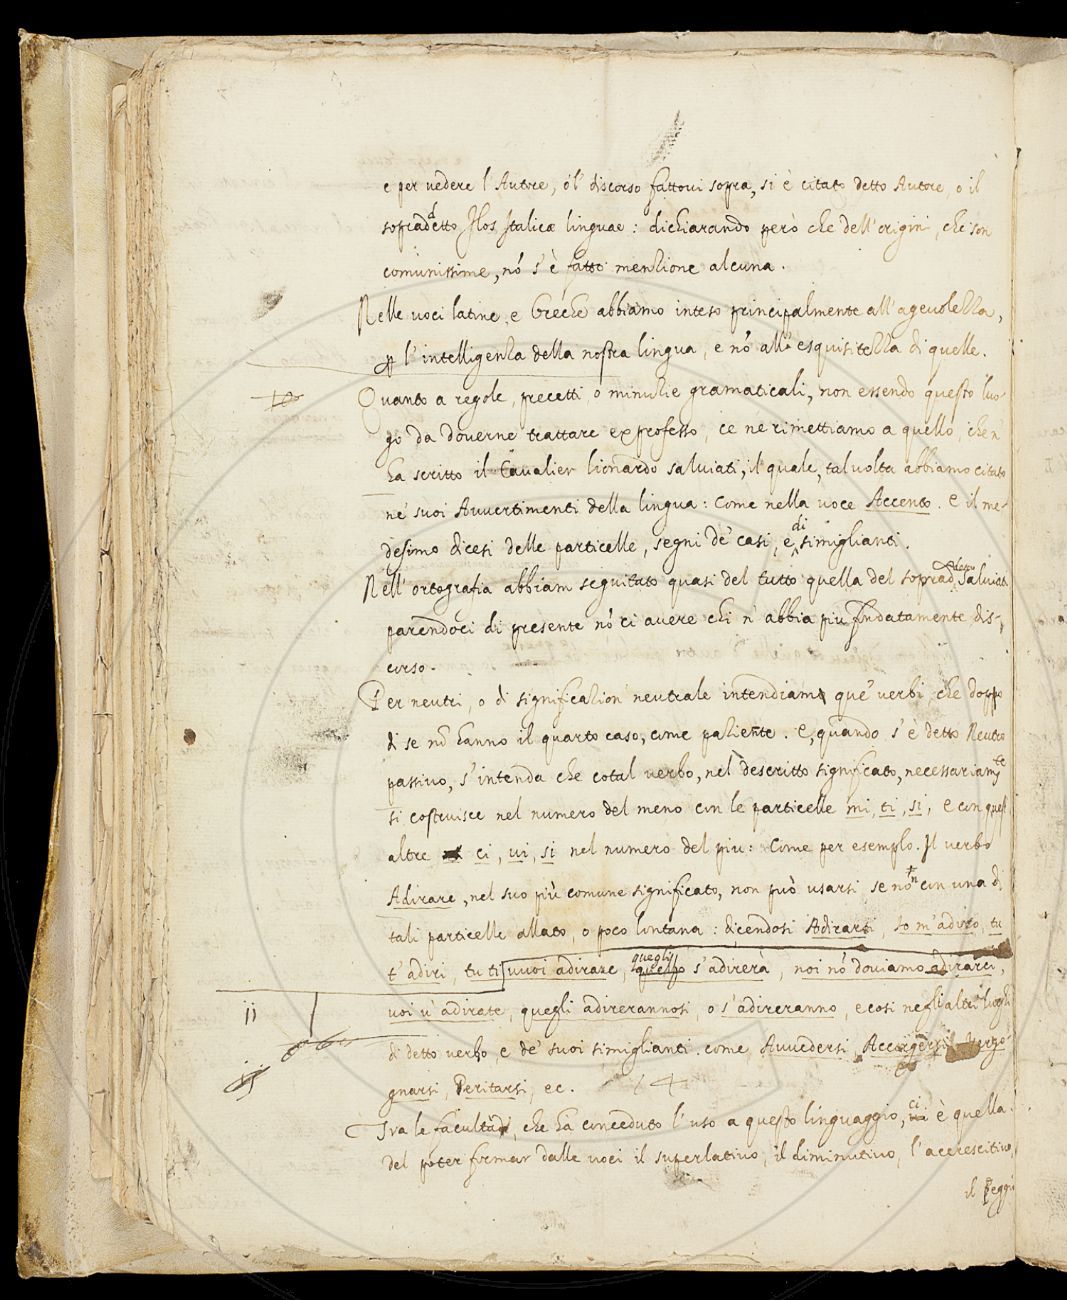 e per vedere l'Autore, o 'l discorso fattovi sopra, si è citato detto Autore, o il
sopradetto Flos Italicæ linguae: dichiarando però che dell'origini, che son
comunissime, nō s'è fatto menzione alcuna.
Nelle voci latine, e Greche abbiamo inteso principalmente all'agevolezza,
ꝑ l'intelligenza della nostra lingua, e nō all'esquisitezza di quelle.
10
Quanto a regole, precetti, o minuzie gramaticali, non essendo questo luo-
go da doverne trattare ex professo, ce ne rimettiamo a quello, che n
ha scritto il Cavalier Lionardo Salviati, il quale, talvolta abbiamo citato
ne' suoi Avvertimenti della lingua: Come nella voce Accento. E il me-
desimo dicesi delle particelle, segni de' casi, e di simiglianti.
Nell'ortografia abbiam seguitato quasi del tutto quella del soprad.detto Salviati
parendoci di presente nō ci avere chi n'abbia più fondatamente dis-
corso.
Per neutri, o di significazion neutrale intendiamo que' verbi che doppo
di se nō hanno il quarto caso, come paziente. E, quando s'è detto Neutro
passivo, s'intenda che cotal verbo, nel descritto significato, necessariam.te
si costruisce nel numero del meno con le particelle mi, ti, si, e con quest
altre ci, vi, si nel numero del piu: Come per esemplo. Il verbo
Adirare, nel suo più comune significato, non può usarsi se non con una di
tali particelle allato, o poco lontana: dicendosi Adirarsi, Io m'adiro, tu
t'adiri, tu ti vuoi adirare, quegli s'adirerà, noi nō doviamo adirarci,
11
voi v'adirate, quegli adirerannosi, o s'adireranno, e cosi negli altri luoghi
di detto verbo, e de' suoi simiglianti. come Avvedersi Accorgersi Vergo-
gnarsi, Peritarsi, ec.
14
Tra le facultadi, che ha conceduto l'uso a questo linguaggio, ci è quella
del poter formar dalle voci il superlativo, il diminutivo, l'accrescitivo,
il peggi